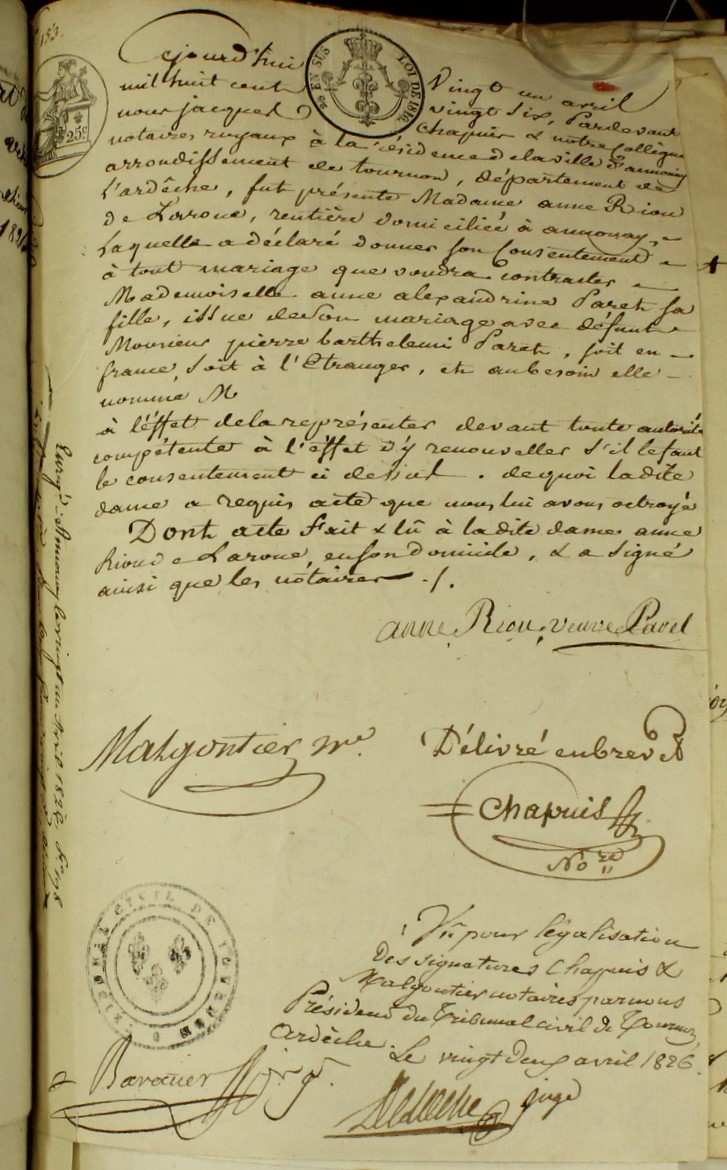 153.
EN SUS
LOI DE 1816
25c
Cejourd'hui vingt un avril
mil huit cent vingt six, Pardevant
nous jacques chapuis & notre collègue
notaires royaux à la résidence de la ville d'annonay
arrondissement de tournon, département de
l'ardèche, fut présente Madame anne Riou
de Laroue, rentière domiciliée à annonay,
Laquelle a déclaré donner son Consentement
à tout mariage que voudra contracter
Mademoiselle anne alexandrine Paret sa
fille, issue de son mariage avec défunt
Monsieur pierre barthelemi Paret, soit en
france, soit à l'Etranger, et au besoin elle
nomme M
à l'éffet de la représenter devant toute autorité
compétente à l'éffet d'y renouveller s'il le faut
le consentement ci dessus. de quoi la dite
dame a requis acte que nous lui avons octroyé
Dont acte Fait & lû à la dite dame anne
Riou de Laroue, en son domicile, & a signé
ainsi que les notaires ./.
anne Riou veuve Paret
Malgontier nre.
Délivré en brevet
Chapuis
No.re
TRIBUNAL CIVIL DE TOURNON
Vu pour légalisation
Des signatures Chapuis &
Malgontier notaires par nous
Président du Tribunal civil de Tournon,
Ardèche. Le vingt deux avril 1826.
juge
Enregé. à annonay le vingt un avril 1826. fo 198